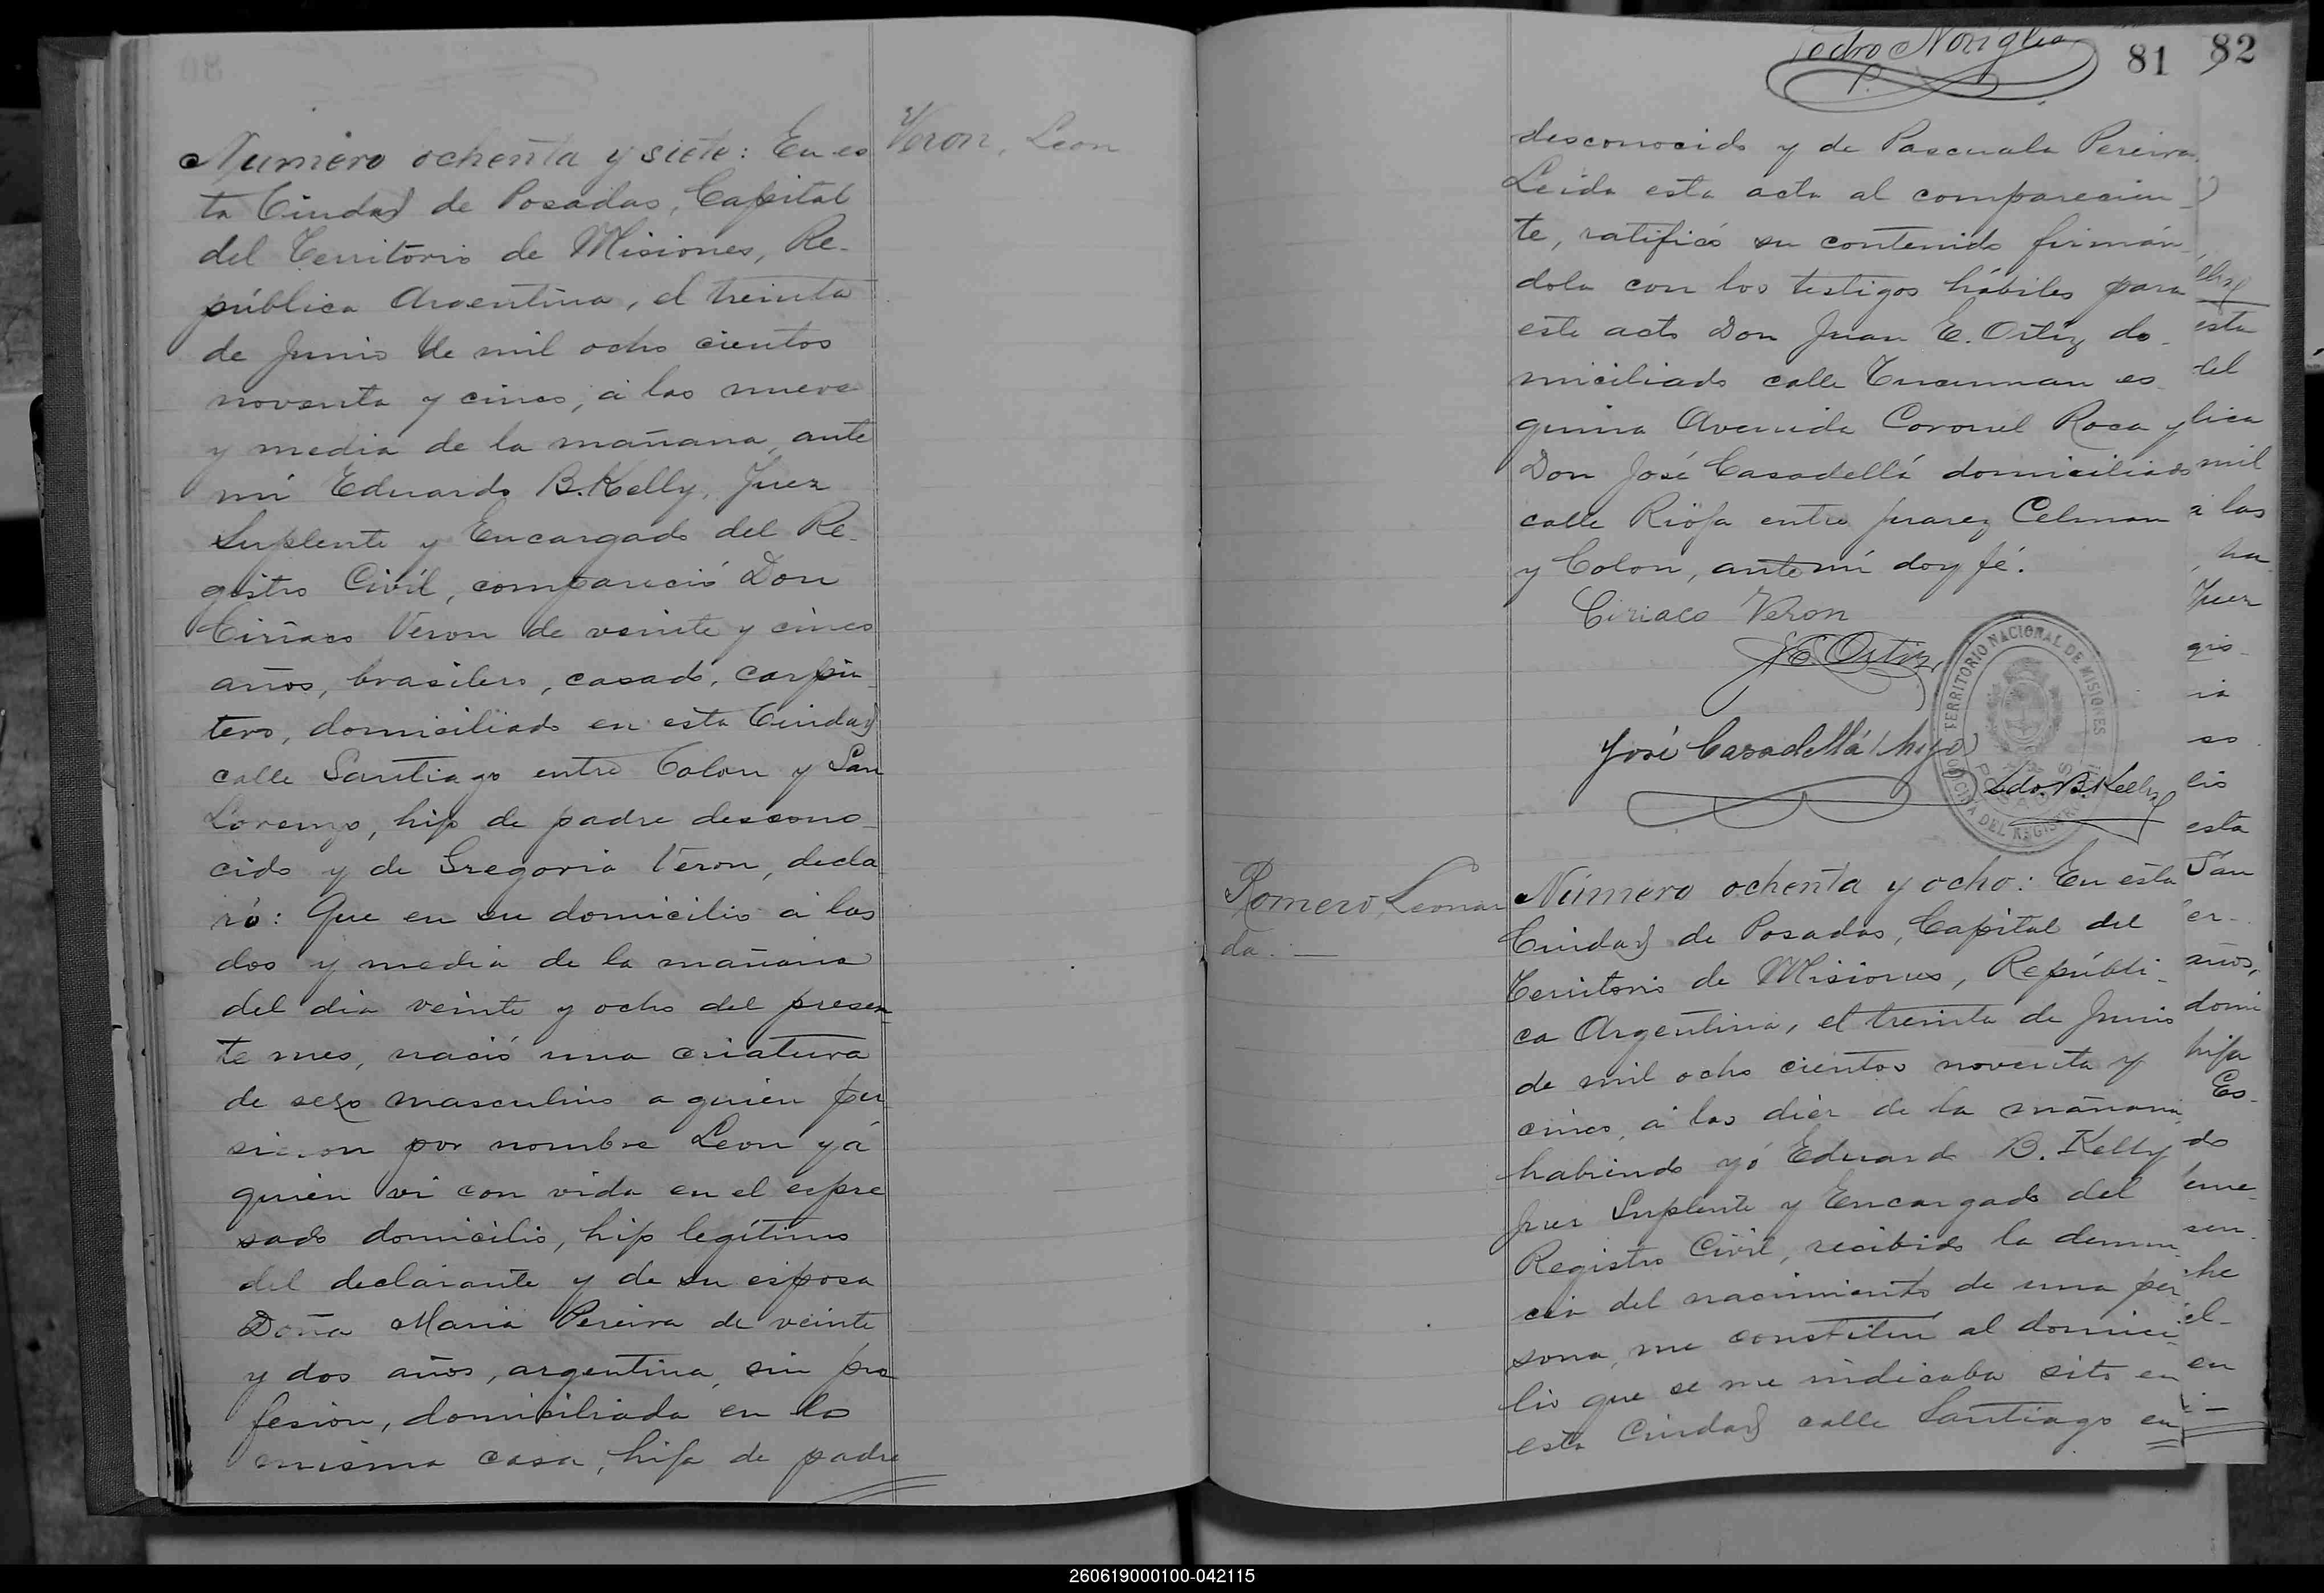 Número ochenta y siete: En es
ta Ciudad de Posadas, Capital
del Territorio de Misiones, Re-
pública Argentina, el treinta
de Junio de mil ocho cientos
noventa y cinco, á las nueve
y media de la mañana, ante
mí Eduardo B. Kelly, Juez
Suplente y Encargado del Re-
gistro Civíl, compareció Don
Ciriaco Veron de veinte y cinco
años, brasilero, casado, carpin-
tero, domiciliado en esta Ciudad
calle Santiago entre Colon y San
Lorenzo, hijo de padre descono-
cido y de Gregoria Veron, decla
ró: Que en su domicilio á las
dos y media de la mañana
del dia veinte y ocho del presen-
te mes, nació una criatura
de sexo masculino a quien pu
sieron por nombre Leon y á
quien ví con vida en el espre
sado domicilio, hijo legítimo
del declarante y de su esposa
Doña Maria Pereira de veinte
y dos años, argentina, sin pro
fesion, domiciliada en la
misma casa, hija de padre
Veron, Leon
Pedro Noriglia
81 82
desconocido y de Pascuala Pereira.
Leida esta acta al comparecien-
te, ratificó su contenido firmán-
dola con los testigos hábiles para
este acto Don Juan E. Ortiz do-
miciliado calle Tucuman es-
quina Avenida Coronel Roca y
Don José Casadellá domiciliado
calle Rioja entre Juarez Celman
y Colon, ante mí doy fé.
Ciriaco Veron
J E Ortiz
José Casadellá hijo
Edo. B. Kelly
TERRITORIO NACIONAL DE MISIONES
Romero, Leonar
da. —
Número ochenta y ocho: En esta
Ciudad de Posadas, Capital del
Territorio de Misiones, Repúbli-
ca Argentina, el treinta de Junio
de mil ocho cientos noventa y
cinco, á las diez de la mañana,
habiendo yó Eduardo B. Kelly
Juez Suplente y Encargado del
Registro Civíl, recibido la denun-
cia del nacimiento de una per
sona, me constituí al domici-
lio que se me indicaba sito en
esta Ciudad calle Santiago en
esta
del
lica
mil
á las
ña
Juez
gis-
ia
so
lio
esta
San
er-
años,
domi
hija
Es-
do
eme-
sen-
he
el-
en
260619000100-042115